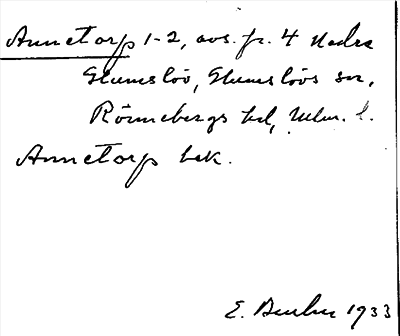 Annetorp 1-2, avs. fr. 4 Nedra
Glumslöv, Glumslövs sn,
Rönnebergs hd, Mlm. l.
Annetorp bek.
E. 1933